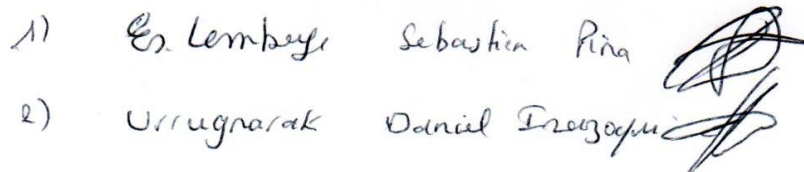 1) Es. Lembeye Sebastien Pina
2) Urrugnarak Daniel Irazoqui